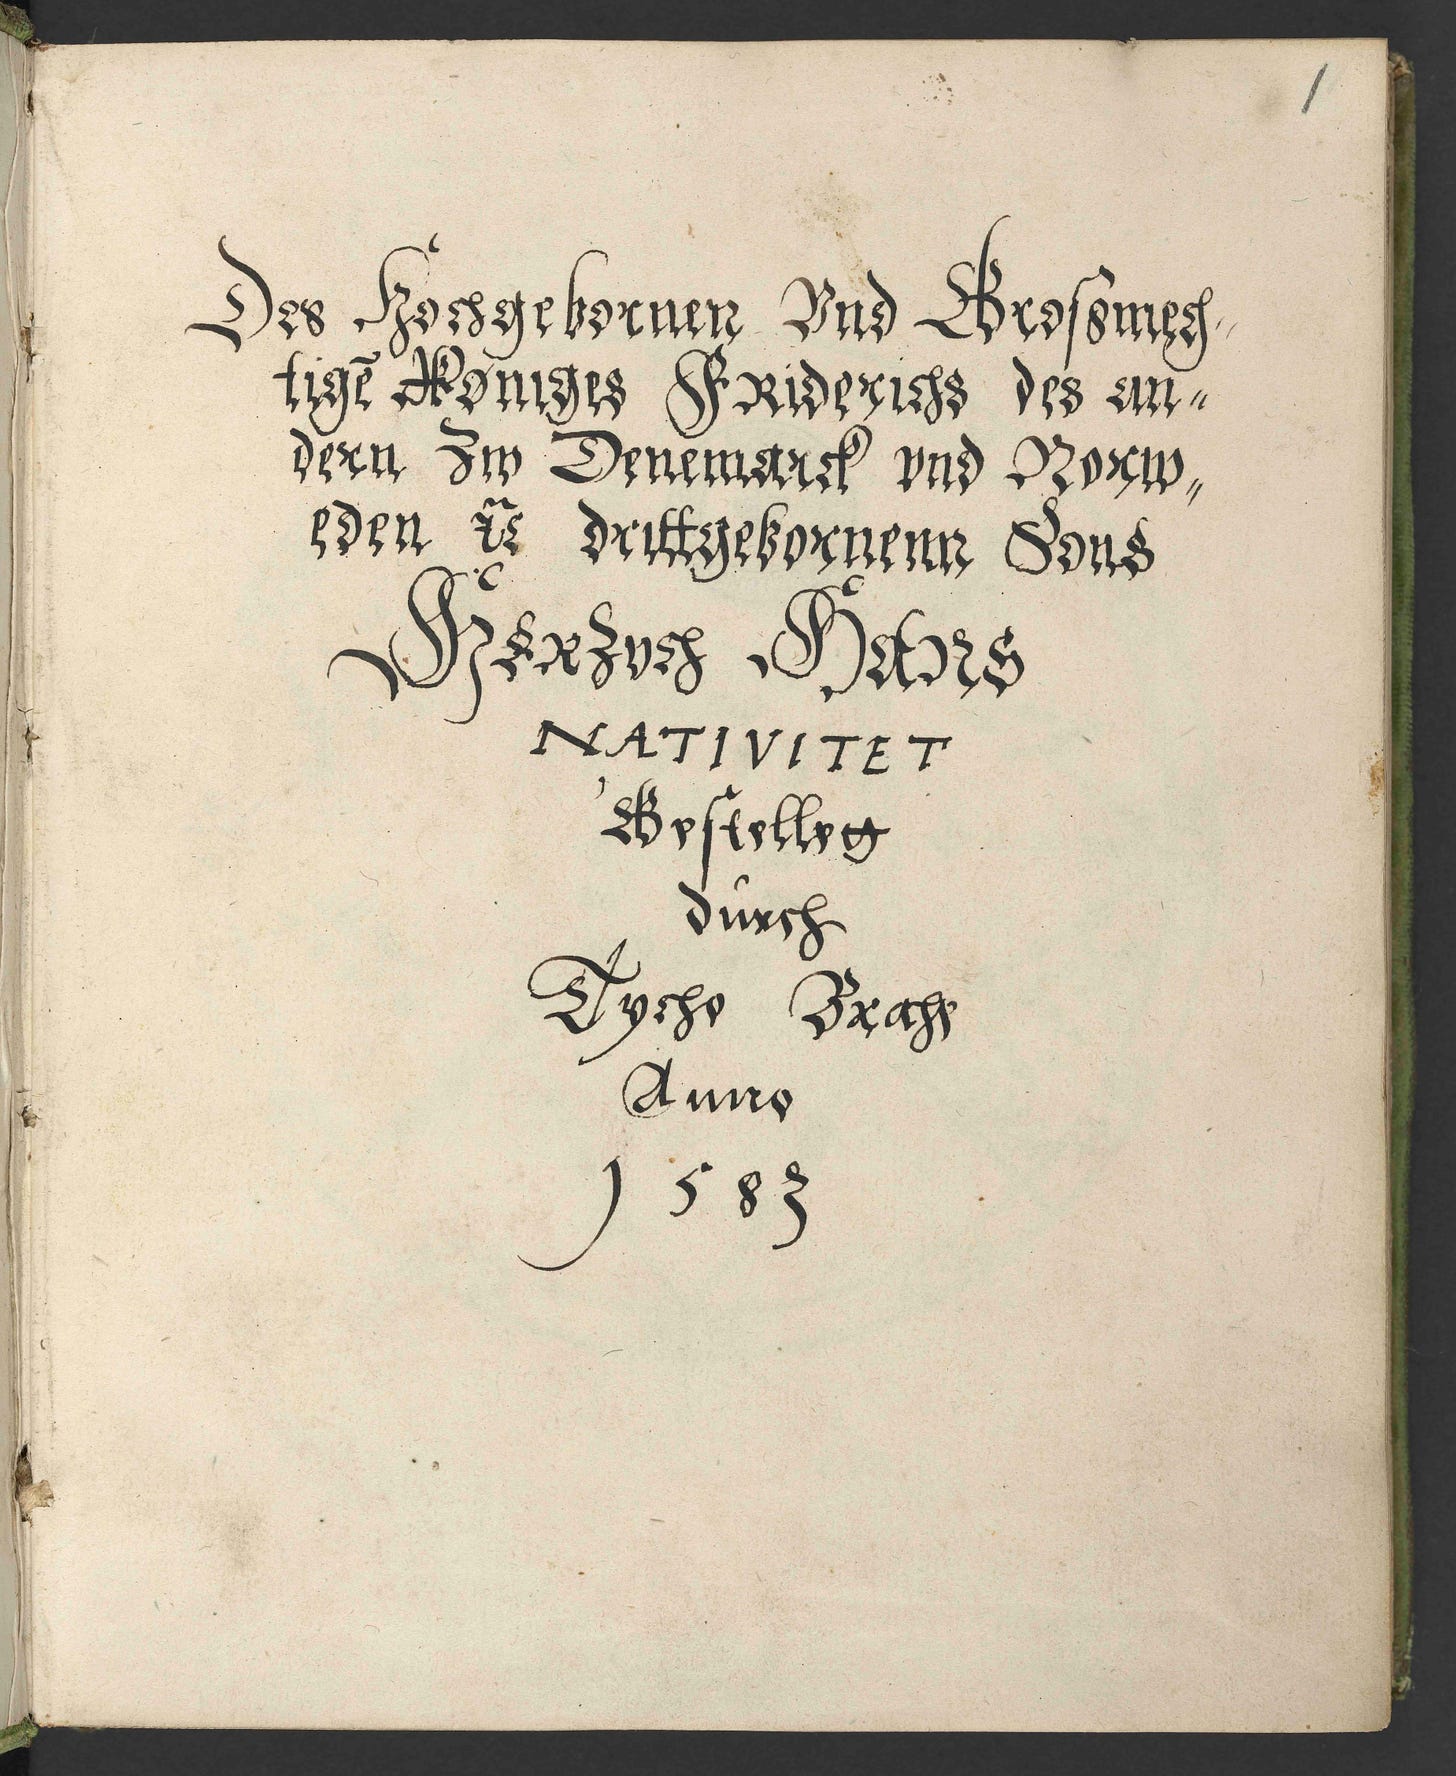 1
Des Hochgebornen Vnd Grossmech-
tigē Königes Friderichs des an-
dern Zw Denemarck vnd Norw-
eden ꝛc drittgebornenn Sons
Herzoch Hans
NATIVITET
Gestelleg
durch
Tycho Brahe
Anno
1583